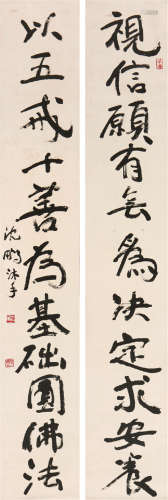 視信願有無為決定求安養
以五戒十善為基礎圓佛法
沈鵬沐手